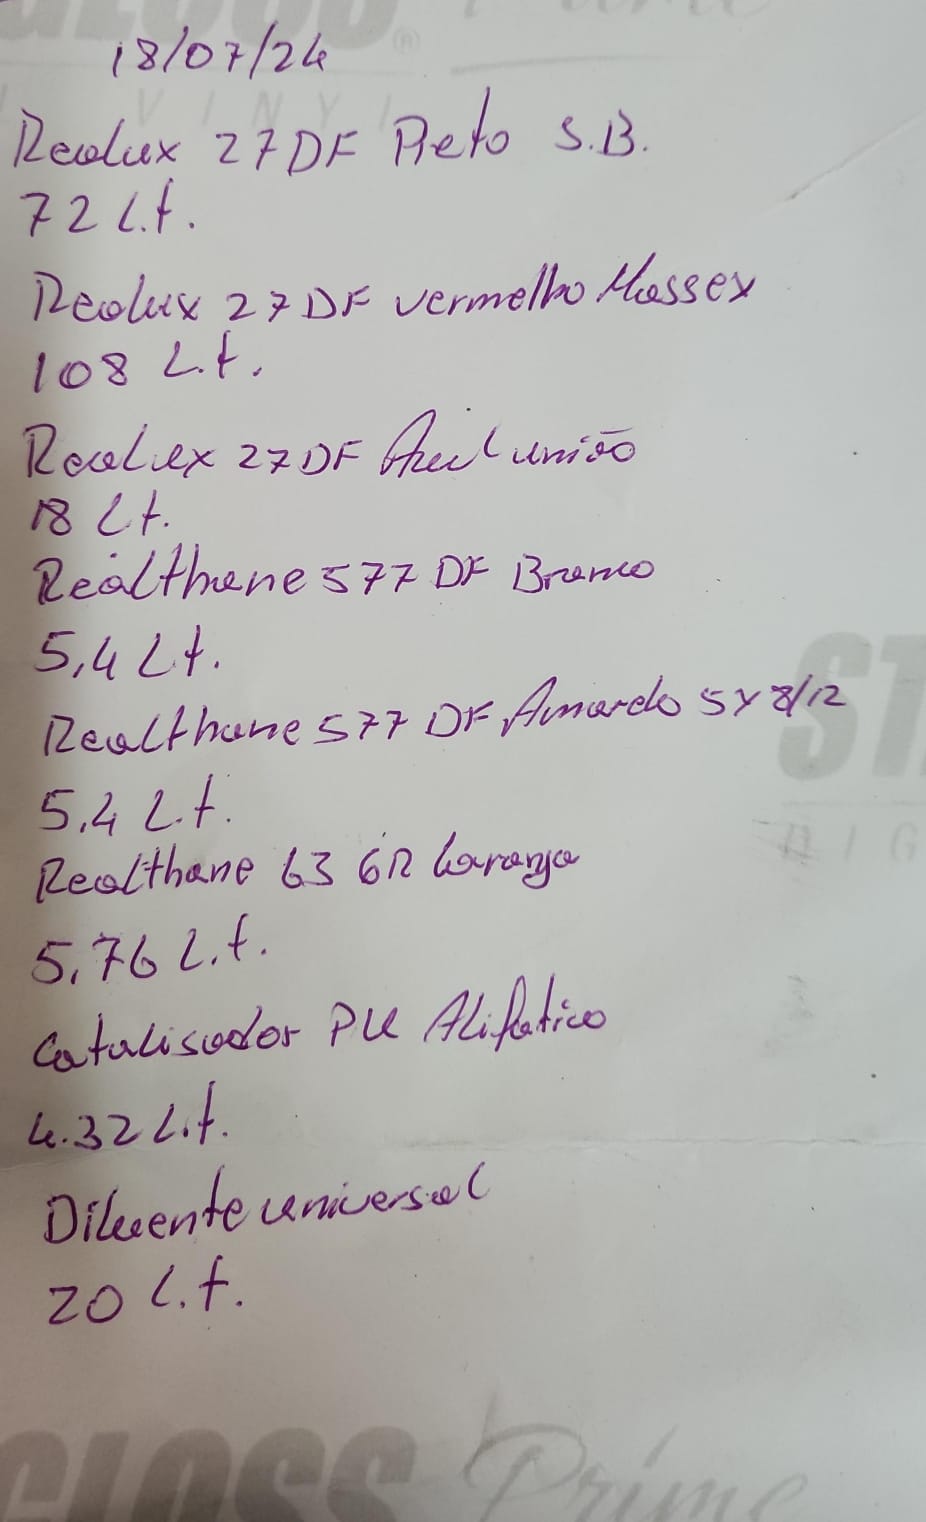 GLOSS Prime
®
VINYL
18/07/24
Realux 27DF Preto S.B.
72 L.t.
Realux 27DF vermelho Massex
108 L.t.
Realux 27DF Azul união
18 Lt.
Realthane 577 DF Branco
5,4 Lt.
Realthane 577 DF Amarelo 5Y8/12
5,4 L.t.
Realthane 63 6R Laranja
5,76 L.t.
Catalisador PU Alifatico
4.32 L.t.
Diluente universal
20 L.t.
ST
HIG
GLOSS Prime